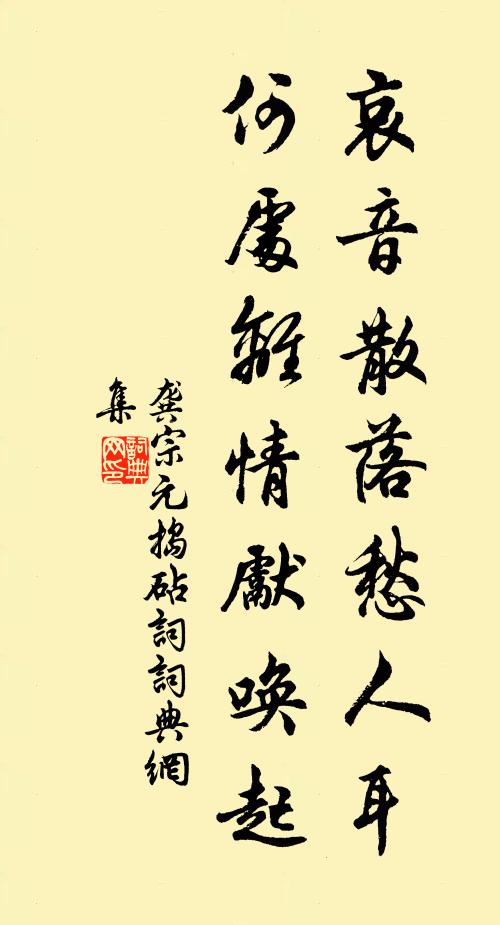 哀音散落愁人耳
何處離情獻喚起
龔宗元搗砧詞詞典網
集
詞典網印